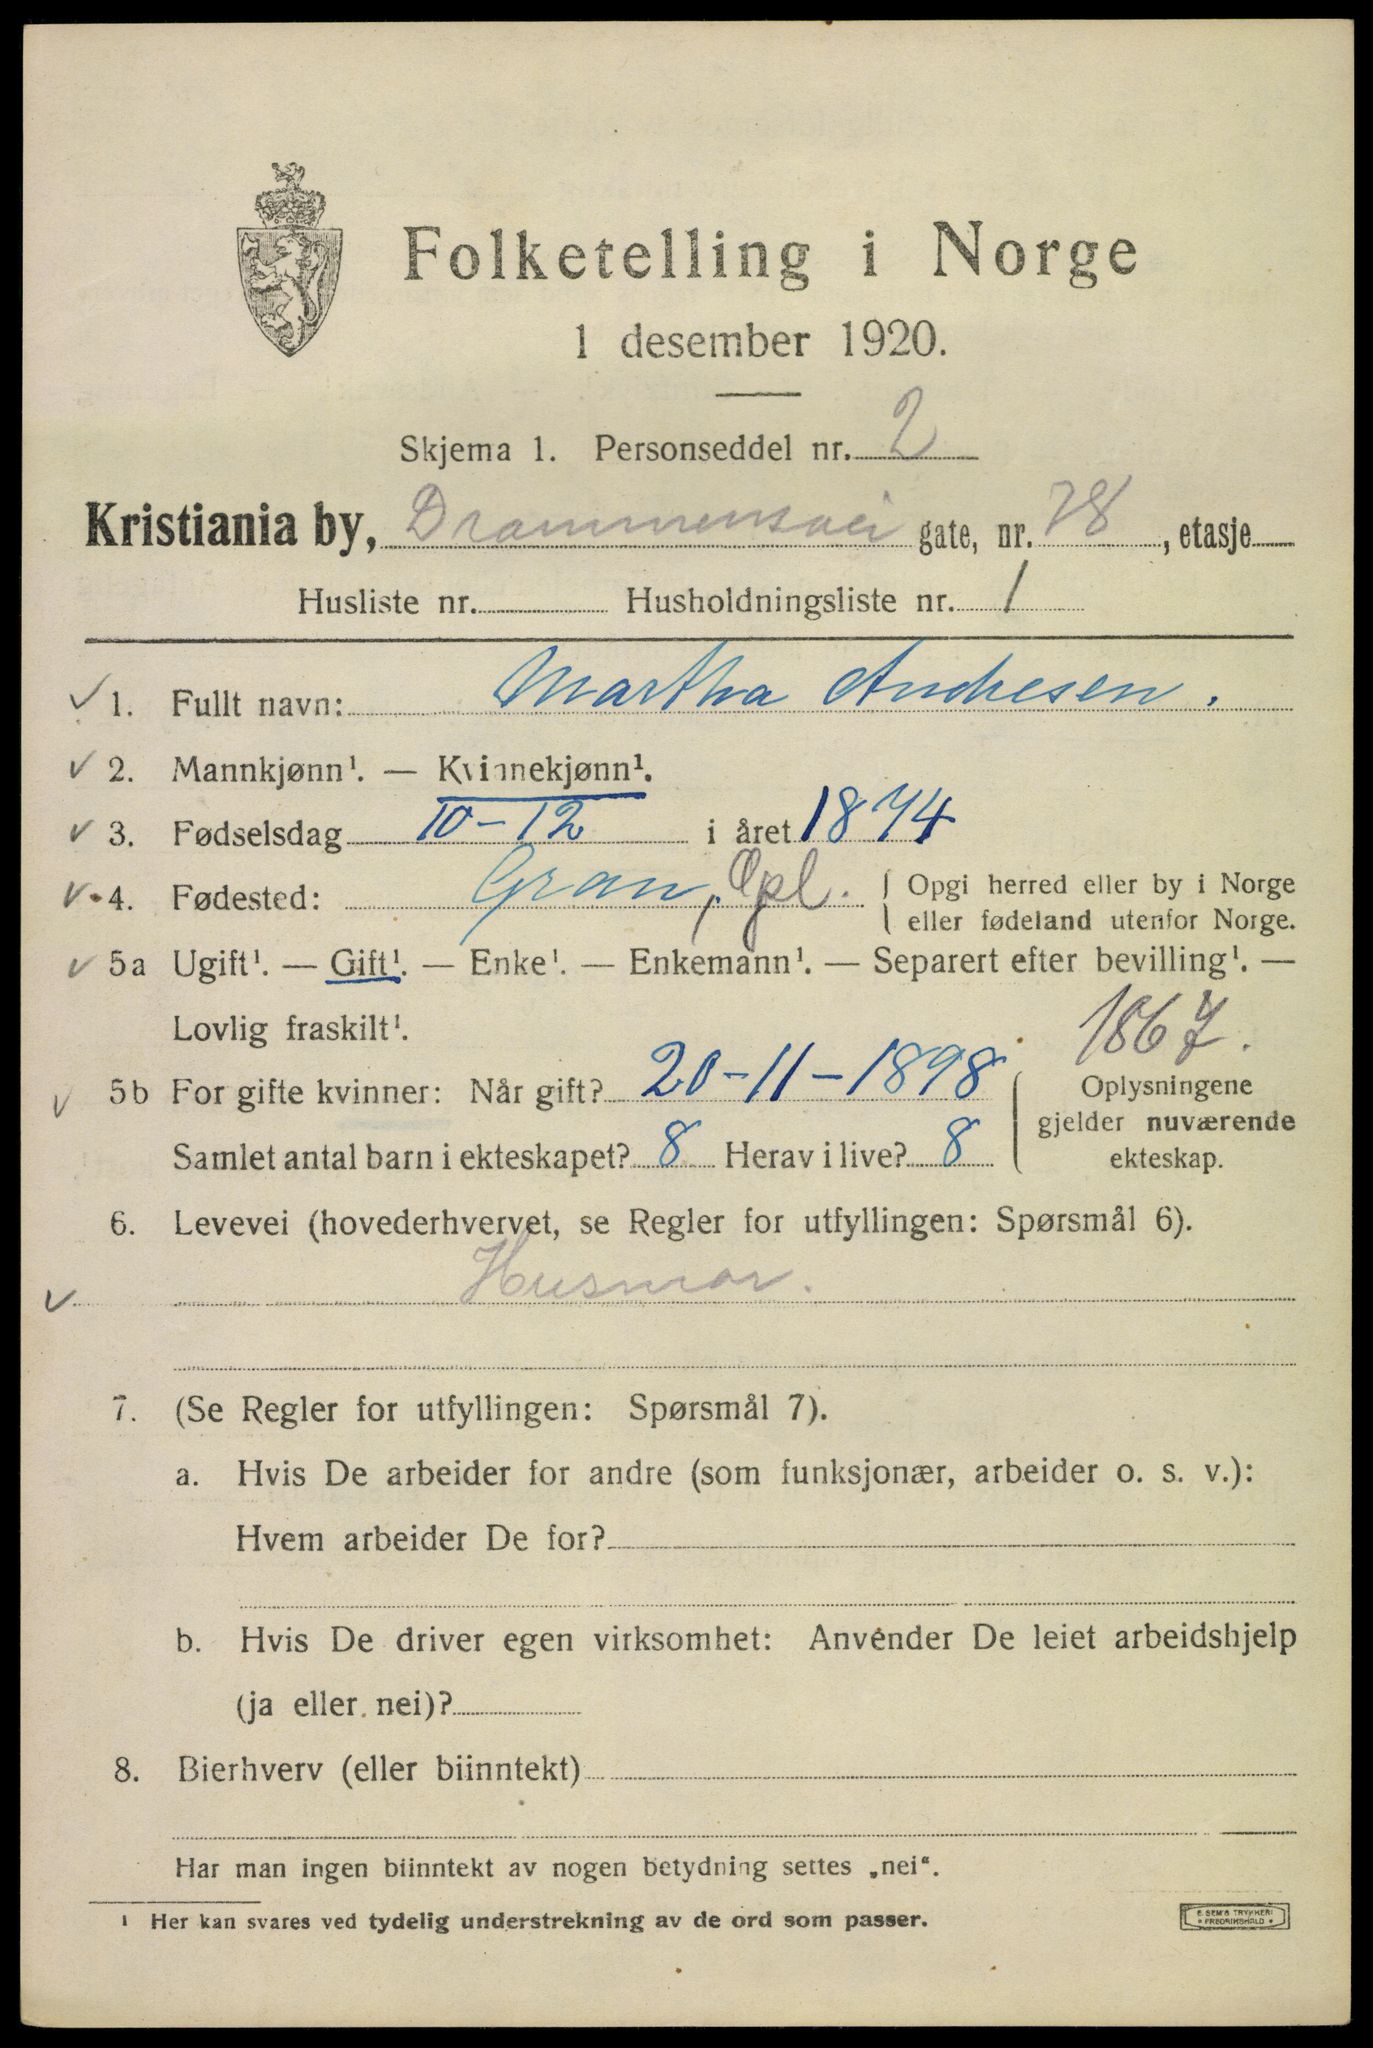 Folketelling i Norge
1 desember 1920.
Skjema 1. Personseddel nr. 2
Kristiania by, Drammensvei gate, nr. 78, etasje
Husliste nr. Husholdningsliste nr. 1
1. Fullt navn: Martha Andresen.
2. Mannkjønn¹. — Kvinnekjønn¹.
3. Fødselsdag 10-12 i året 1874
4. Fødested: Gran, Opl. Opgi herred eller by i Norge
eller fødeland utenfor Norge.
5a Ugift¹. — Gift¹. — Enke¹. — Enkemann¹. — Separert efter bevilling¹. —
Lovlig fraskilt¹.
1867.
5b For gifte kvinner: Når gift? 20-11-1898 Oplysningene
gjelder nuværende
Samlet antal barn i ekteskapet? 8 Herav i live? 8 ekteskap.
6. Levevei (hovederhvervet, se Regler for utfyllingen: Spørsmål 6).
Husmor.
7. (Se Regler for utfyllingen: Spørsmål 7).
a. Hvis De arbeider for andre (som funksjonær, arbeider o. s. v.):
Hvem arbeider De for?
b. Hvis De driver egen virksomhet: Anvender De leiet arbeidshjelp
(ja eller nei)?
8. Bierhverv (eller biinntekt)
Har man ingen biinntekt av nogen betydning settes „nei“.
¹ Her kan svares ved tydelig understrekning av de ord som passer.
E. SEM'S TRYKKERI
FREDRIKSHALD